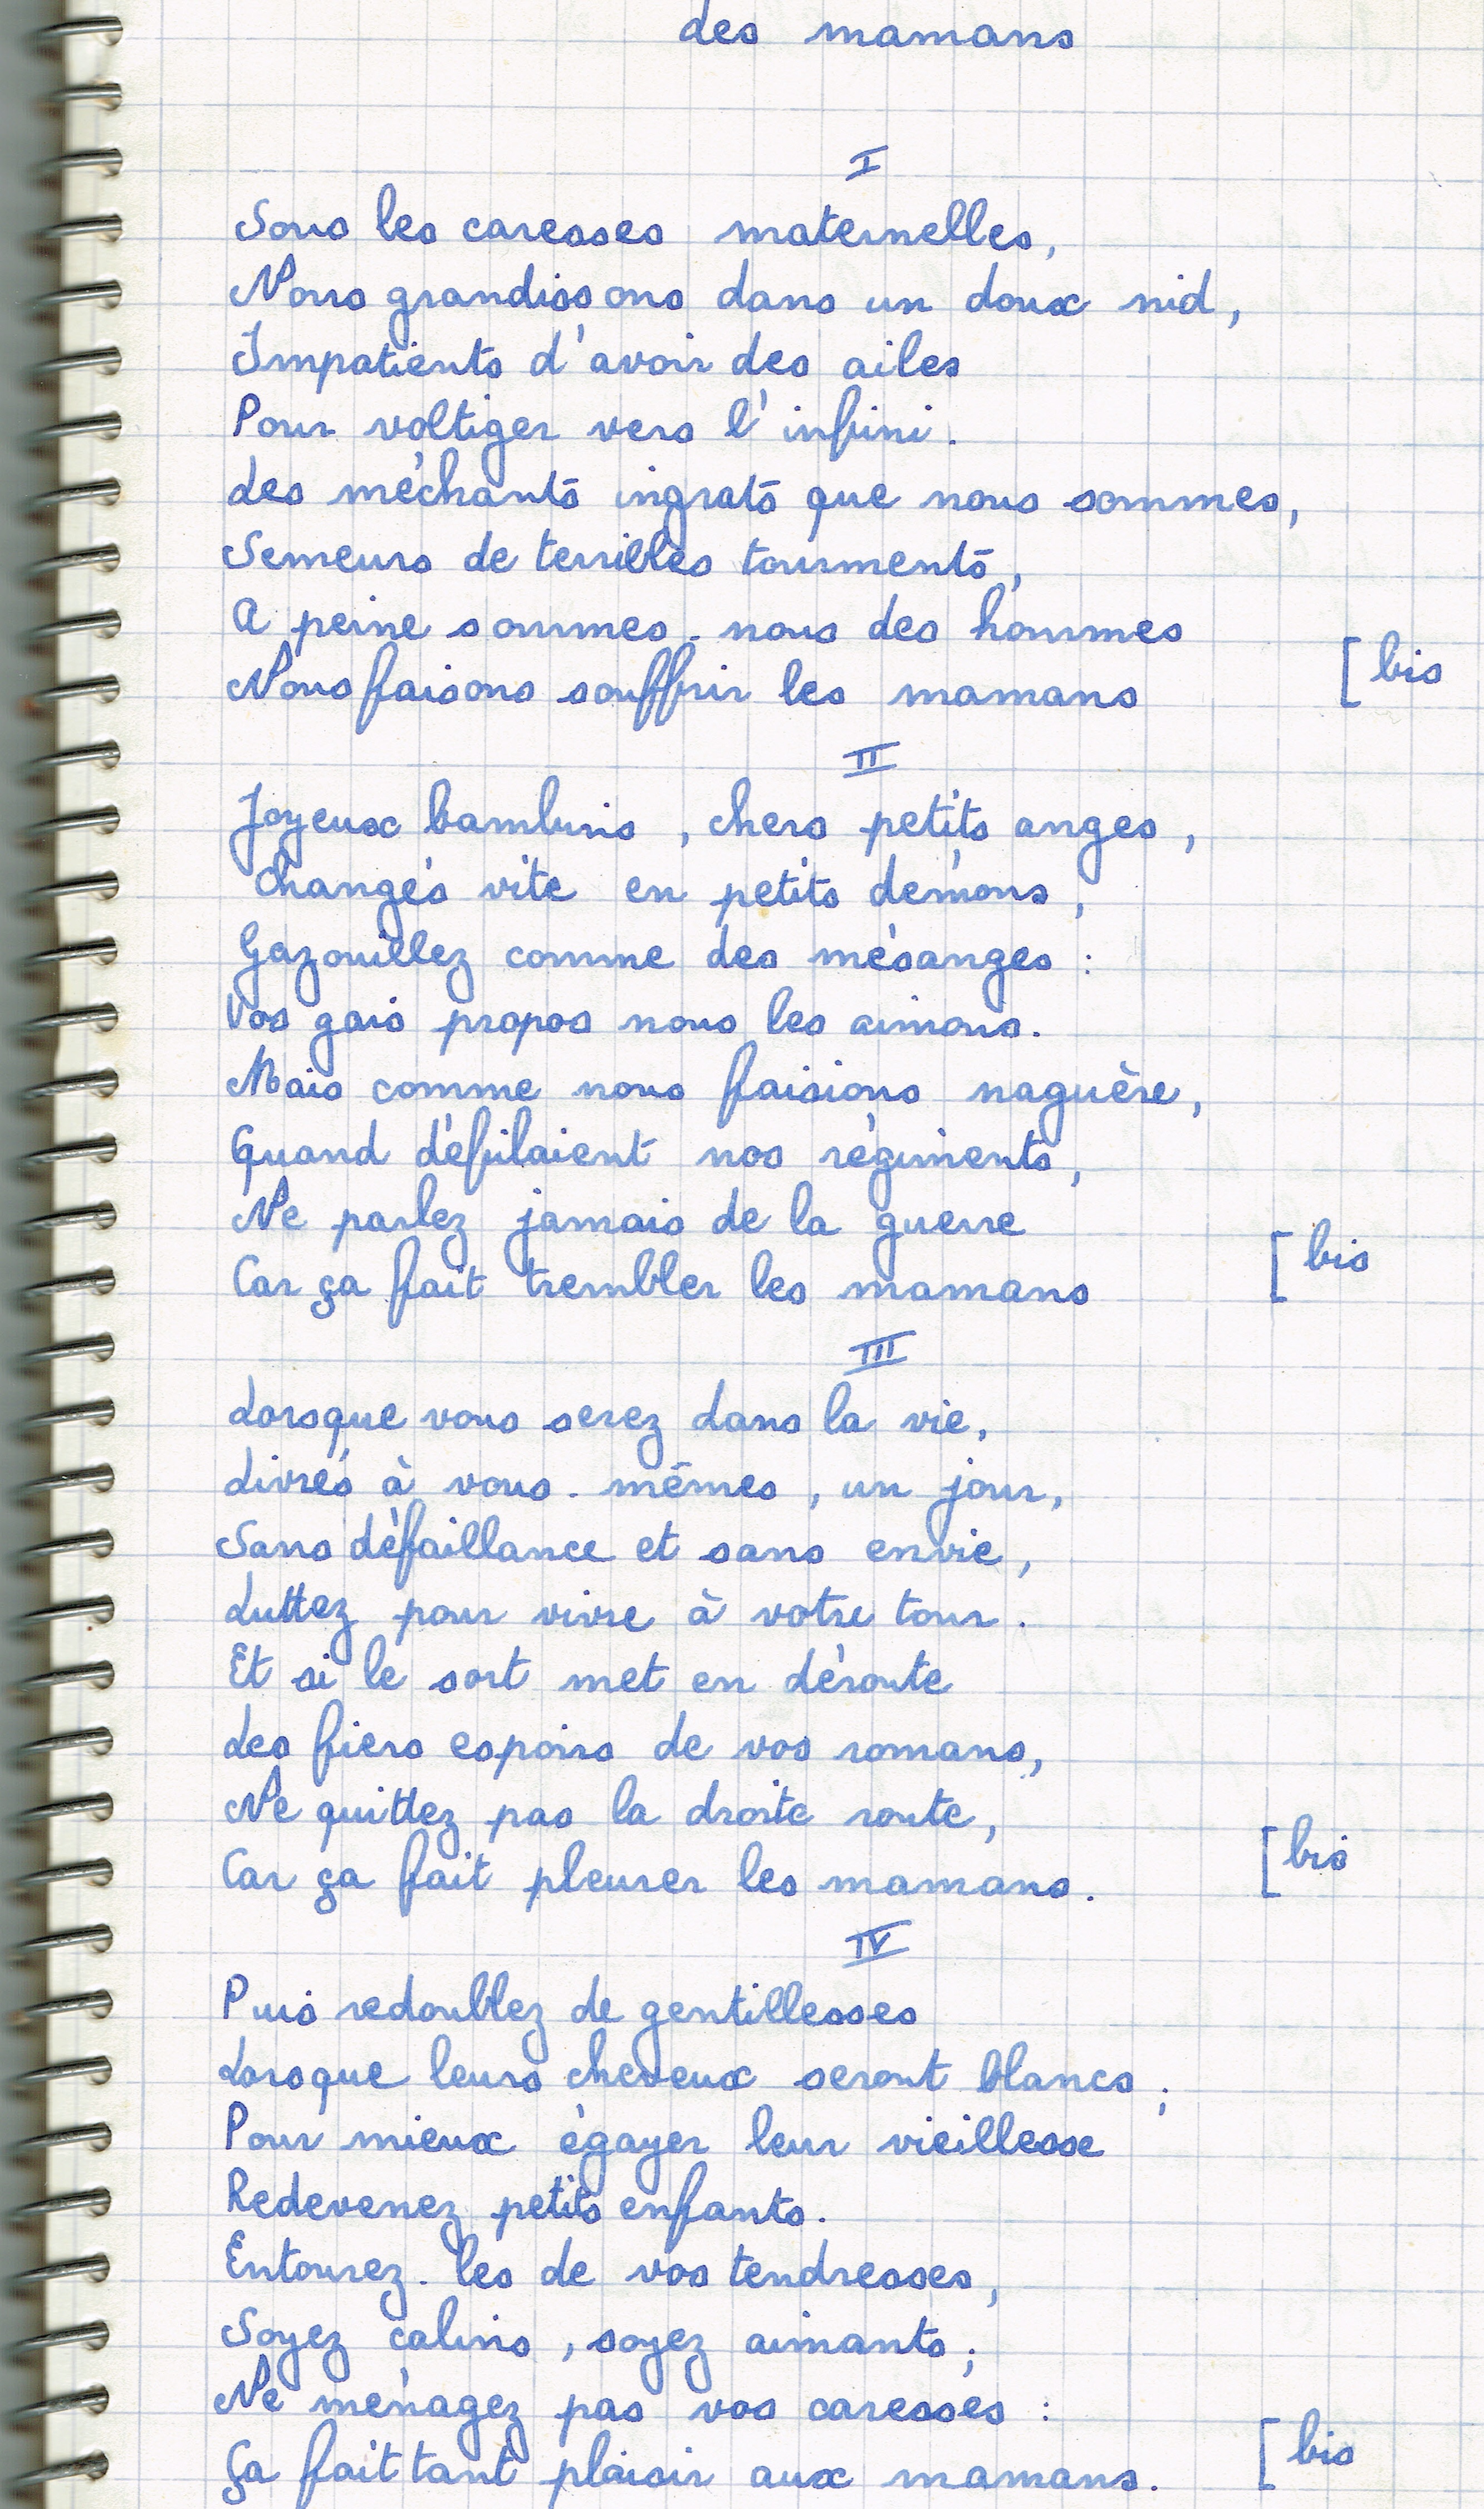 des mamans
I
Sous les caresses maternelles,
Nous grandissons dans un doux nid,
Impatients d'avoir des ailes
Pour voltiger vers l'infini.
Les méchants ingrats que nous sommes,
Semeurs de terribles tourments,
A peine sommes-nous des hommes
Nous faisons souffrir les mamans [bis
II
Joyeux bambins, chers petits anges,
Changés vite en petits démons,
Gazouillez comme des mésanges :
Vos gais propos nous les aimons.
Mais comme nous faisions naguère,
Quand défilaient nos régiments,
Ne parlez jamais de la guerre
Car ça fait trembler les mamans [bis
III
Lorsque vous serez dans la vie,
Livrés à vous-mêmes, un jour,
Sans défaillance et sans envie,
Luttez pour vivre à votre tour.
Et si le sort met en déroute
Les fiers espoirs de vos romans,
Ne quittez pas la droite route,
Car ça fait pleurer les mamans. [bis
IV
Puis redoublez de gentillesses
Lorsque leurs cheveux seront blancs ;
Pour mieux égayer leur vieillesse
Redevenez petits enfants.
Entourez-les de vos tendresses,
Soyez calins, soyez aimants ;
Ne ménagez pas vos caresses :
Ça fait tant plaisir aux mamans. [bis